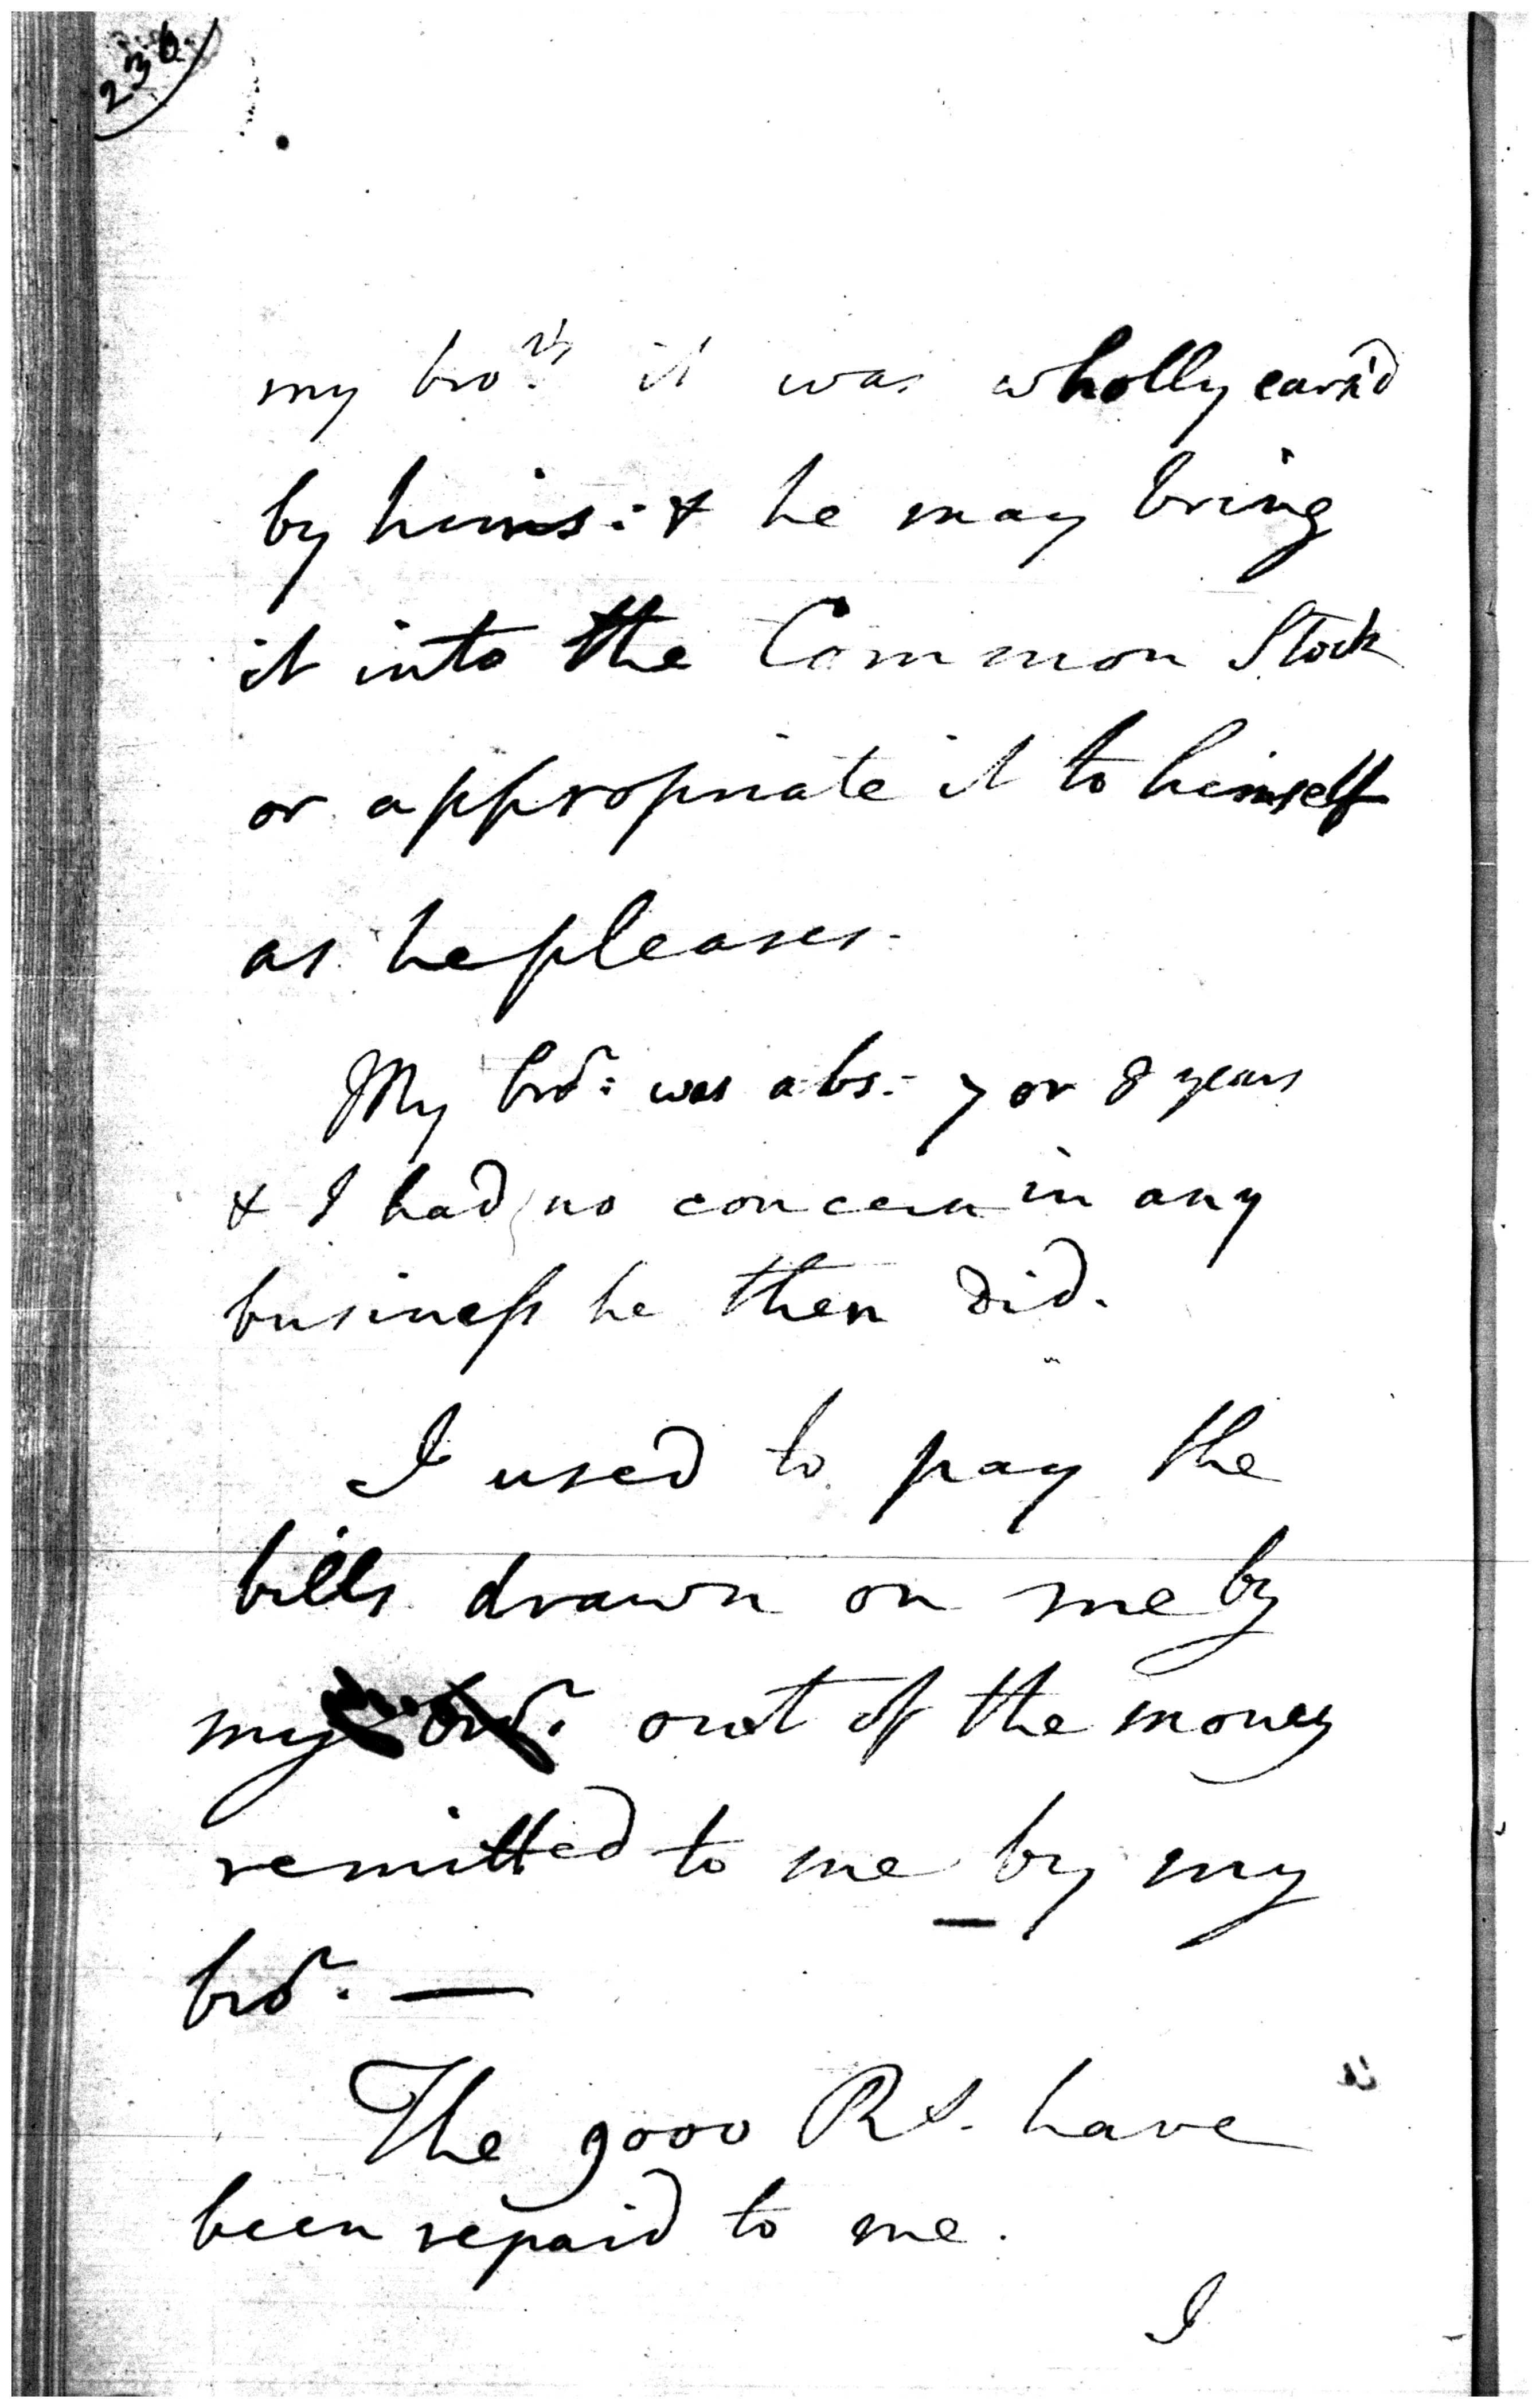 236
my bro:rs it was wholly earn'd
by hims: & he may bring
it into the Common Stock
or appropriate it to himself
as he pleases.
My bror: was abs:- 7 or 8 years
& I had no concern in any
business he then did.
I used to pay the
bills drawn on me by
my bror: out of the money
remitted to me by my
bror. —
The 9000 Rs. have
been repaid to me.
I